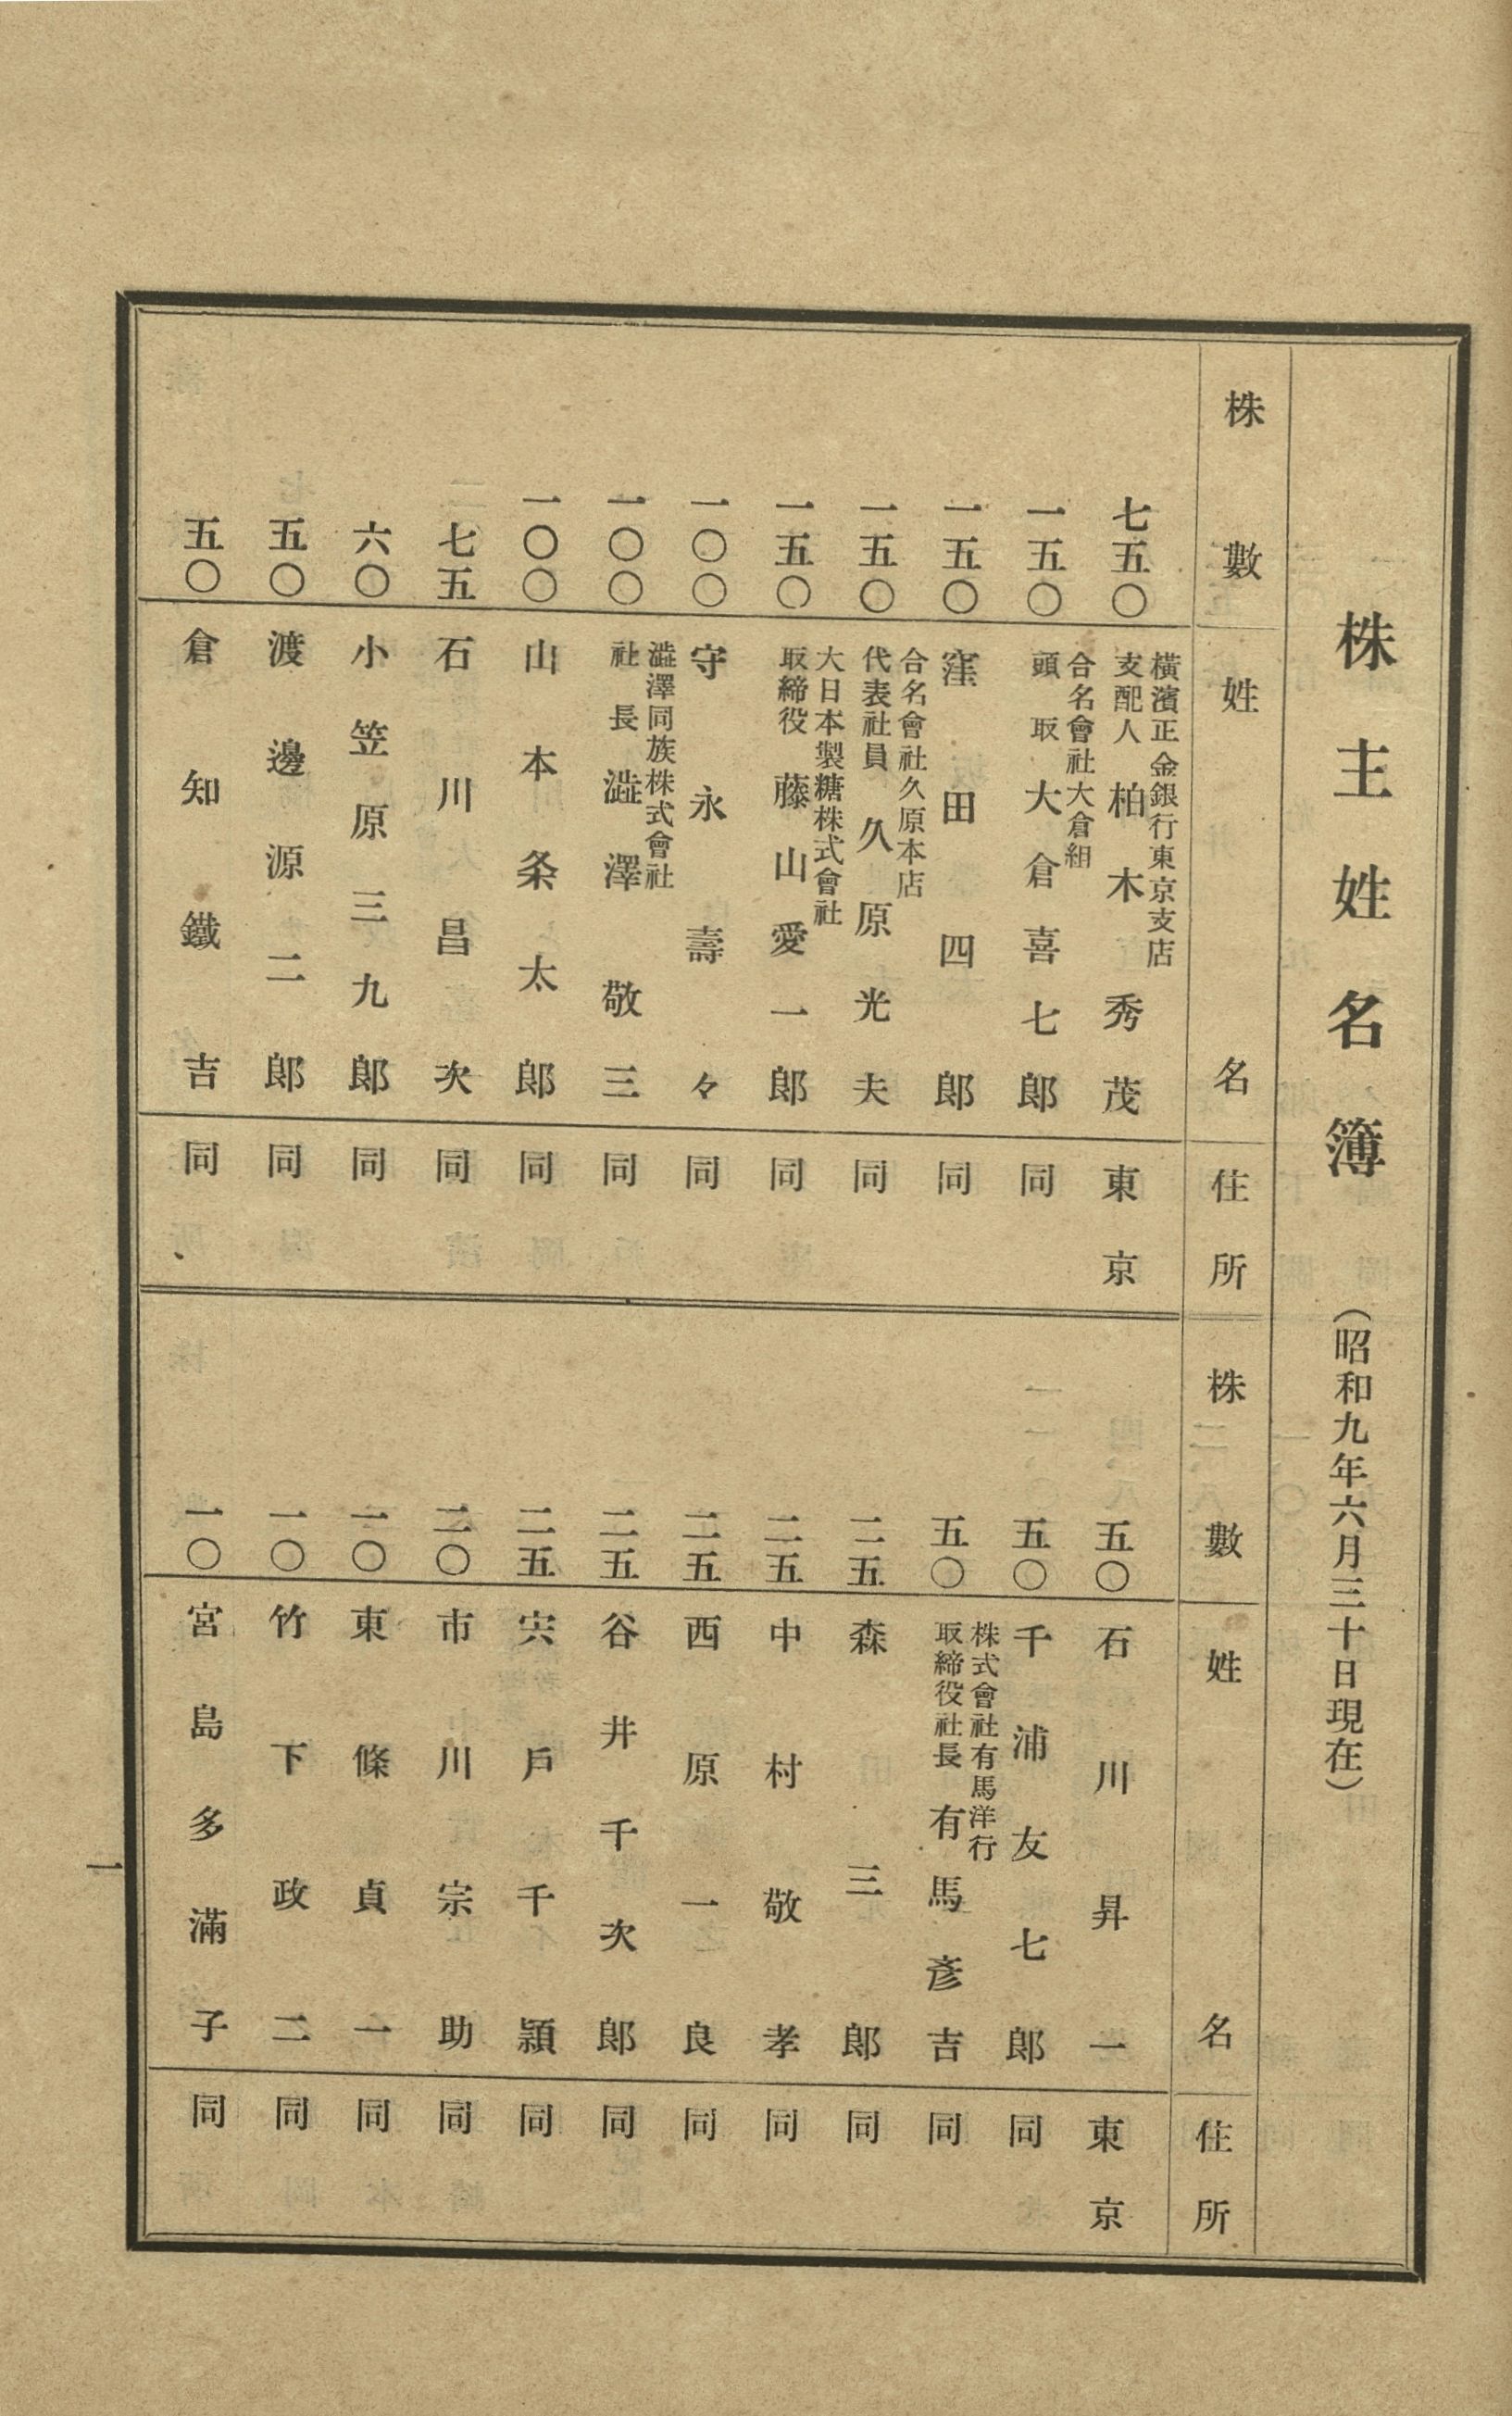 株主姓名簿 (昭和九年六月三十日現在)
株數 姓名 住所
七五〇 横濱正金銀行東京支店支配人 柏木秀茂 東京
一五〇 合名會社大倉組頭取 大倉喜七郎 同
一五〇 窪田四郎 同
一五〇 合名會社久原本店代表社員 久原光夫 同
一五〇 大日本製糖株式會社取締役 藤山愛一郎 同
一〇〇 守永壽々 同
一〇〇 澁澤同族株式會社社長 澁澤敬三 同
一〇〇 山本条太郎 同
七五 石川昌次 同
六〇 小笠原三九郎 同
五〇 渡邊源二郎 同
五〇 倉知鐵吉 同
株數 姓名 住所
五〇 石川昇一 東京
五〇 千浦友七郎 同
五〇 株式會社有馬洋行取締役社長 有馬彥吉 同
二五 森三郎 同
二五 中村敬孝 同
二五 西原一良 同
二五 谷井千次郎 同
二五 宍戶千穎 同
二〇 市川宗助 同
一〇 東條貞一 同
一〇 竹下政二 同
一〇 宮島多滿子 同
一